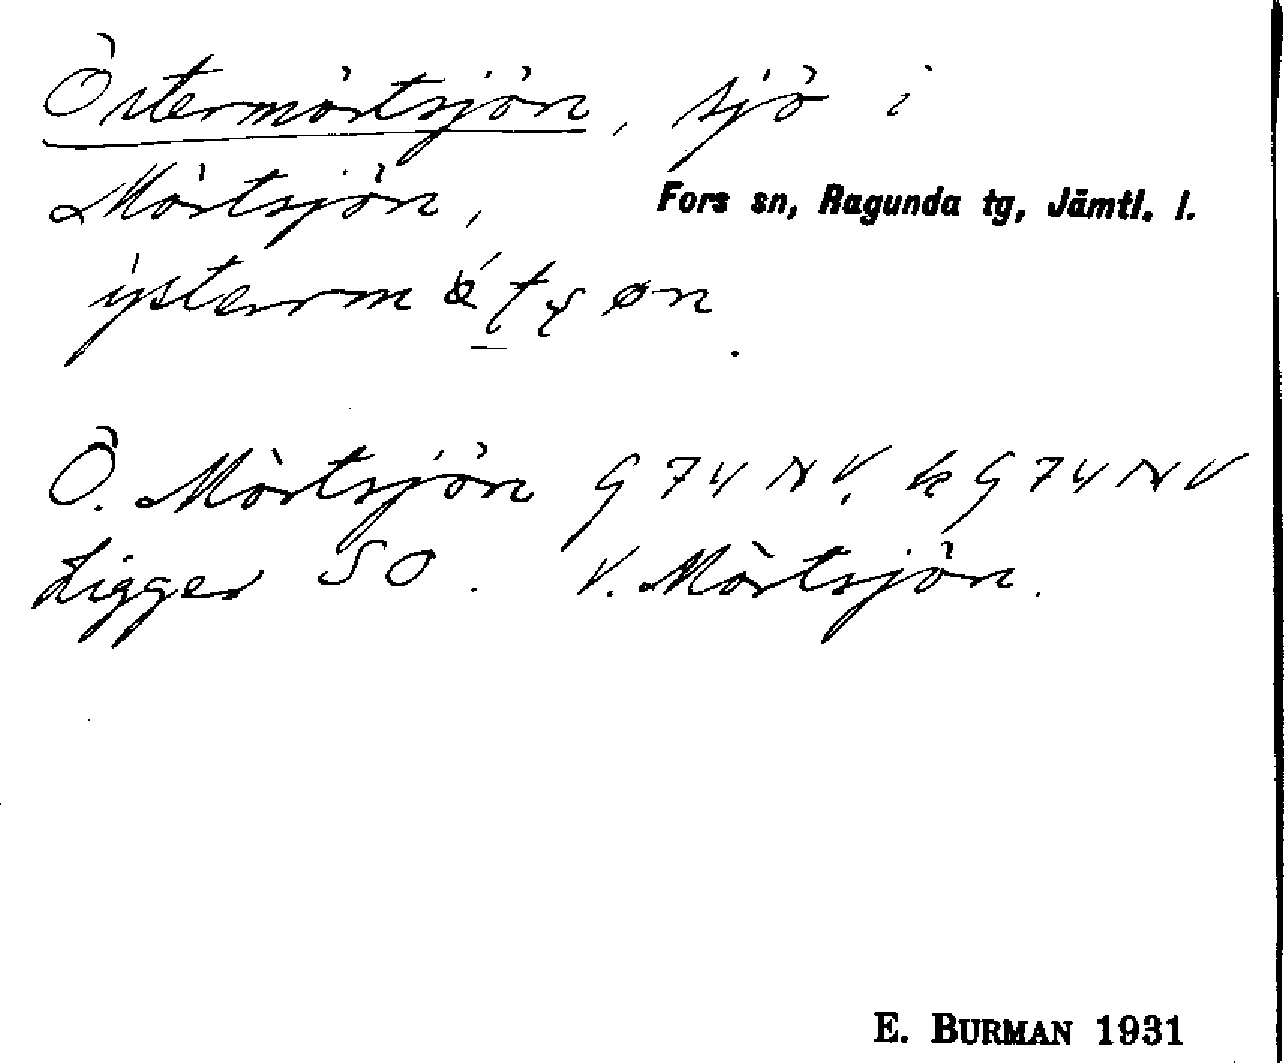 Östermörtsjön, sjö i
Mörtsjön, Fors sn, Ragunda tg, Jämtl. l.
Ö. Mörtsjön G 74 NV. k G 74 NV
Ligger SO. V. Mörtsjön.
E. BURMAN 1931